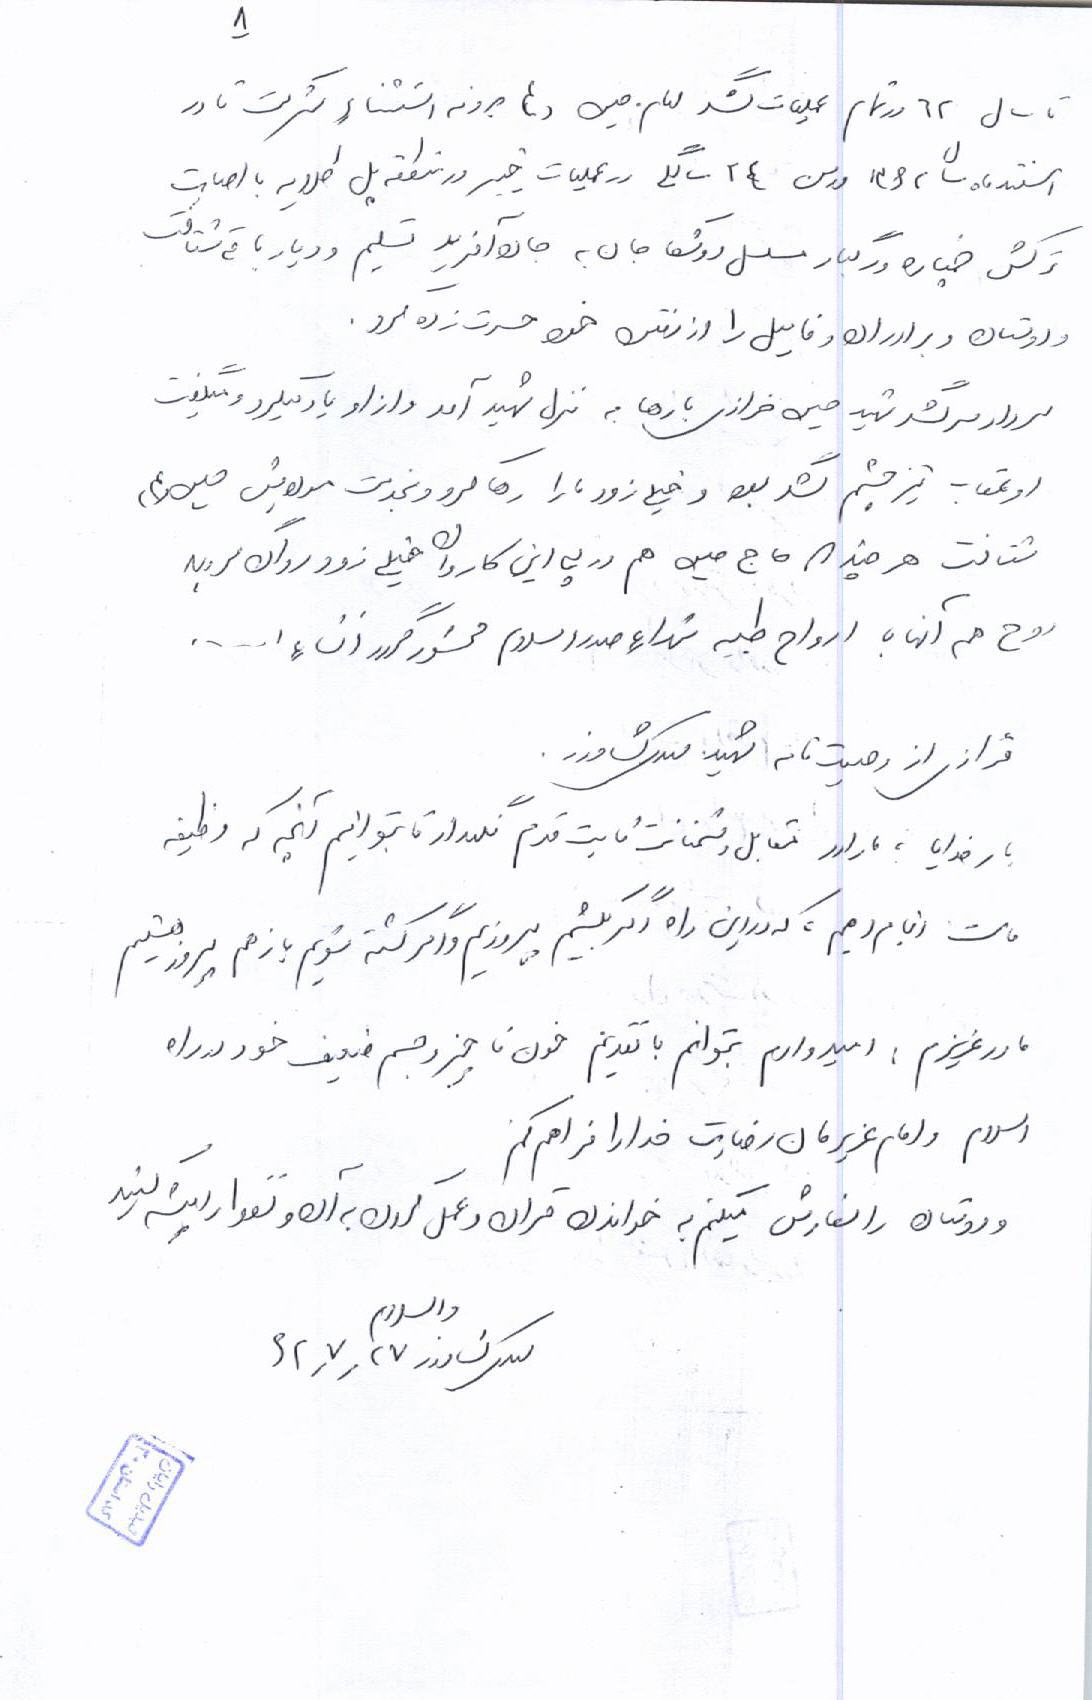 ۸
تا سال ۶۲ در تمام عملیات لشگر امام حسین (ع) بدون استثناء شرکت تا در
اسفند ماه سال ۱۳۶۲ در سن ۲۴ سالگی در عملیات خیبر در منطقه پل طلایه با اصابت
ترکش خمپاره و رگبار مسلسل دوشکا جان به جان آفرین تسلیم و دیار باقی شتافت
و دوستان و برادران و فامیل را از رفتن خود حسرت زده کرد.
سردار سر لشگر شهید حسین خرازی بارها به منزل شهید آمد و از او یاد میکرد و میگفت
او عقاب تیز چشم لشگر بود و خیلی زود ما را رها کرد و بخدمت مولایش حسین (ع)
شتافت هر چند که حاج حسین هم در پی این کاروان خیلی زود روان گردید
روح همه آنها با ارواح طیبه شهداء صدر اسلام محشور گردد انشاءا.....
فرازی از وصیت نامه شهید: کشاورز.
بار خدایا، ما را در مقابل دشمنانت ثابت قدم نگهدار تا بتوانیم آنچه که وظیفه
ماست انجام دهیم، که در این راه اگر بکشیم پیروزیم و اگر کشته شویم باز هم پیروز هستیم
مادر عزیزم، امیدوارم بتوانم با تقدیم خون ناچیز و جسم ضعیف خود در راه
اسلام و امام عزیزمان رضایت خدا را فراهم کنم
و دوستان را سفارش میکنم به خواندن قرآن و عمل کردن به آن و تقوا را پیشه کنید
والسلام
کشاورز ۲۷ ر ۷ ر ۶۲